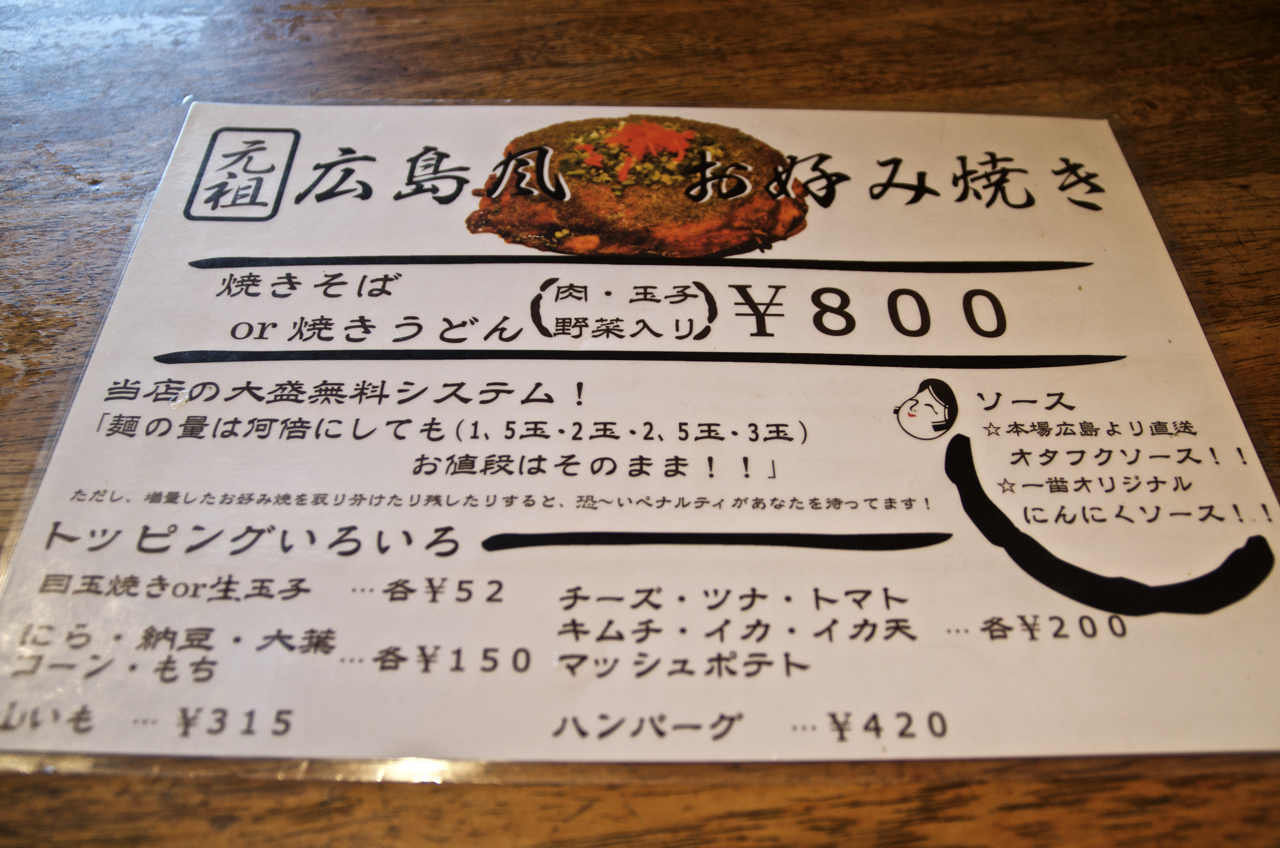 元祖 広島風 お好み焼き
焼きそば
or 焼きうどん
(肉・玉子
野菜入り)
¥800
当店の大盛無料システム！
「麺の量は何倍にしても(1、5玉・2玉・2、5玉・3玉)
お値段はそのまま！！」
ただし、増量したお好み焼を取り分けたり残したりすると、恐～いペナルティがあなたを待ってます！
ソース
☆本場広島より直送
オタフクソース！！
☆一番オリジナル
にんにくソース！！
トッピングいろいろ
目玉焼きor生玉子 …各¥52
にら・納豆・大葉
コーン・もち …各¥150
山いも … ¥315
チーズ・ツナ・トマト
キムチ・イカ・イカ天 …各¥200
マッシュポテト
ハンバーグ …¥420